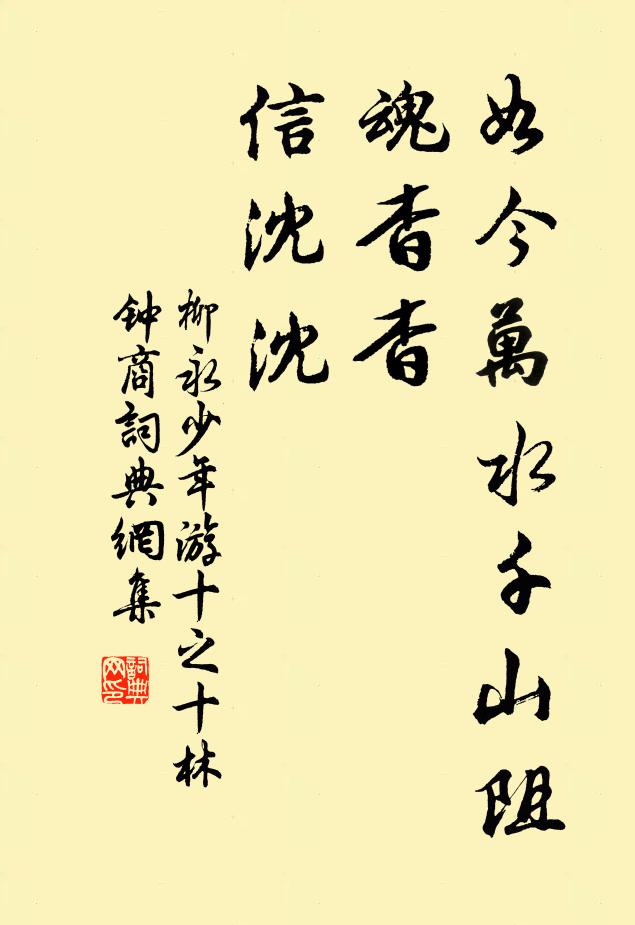 如今萬水千山阻
魂杳杳
信沈沈
柳永少年游十之十林
钟商詞典網集
詞典
网印